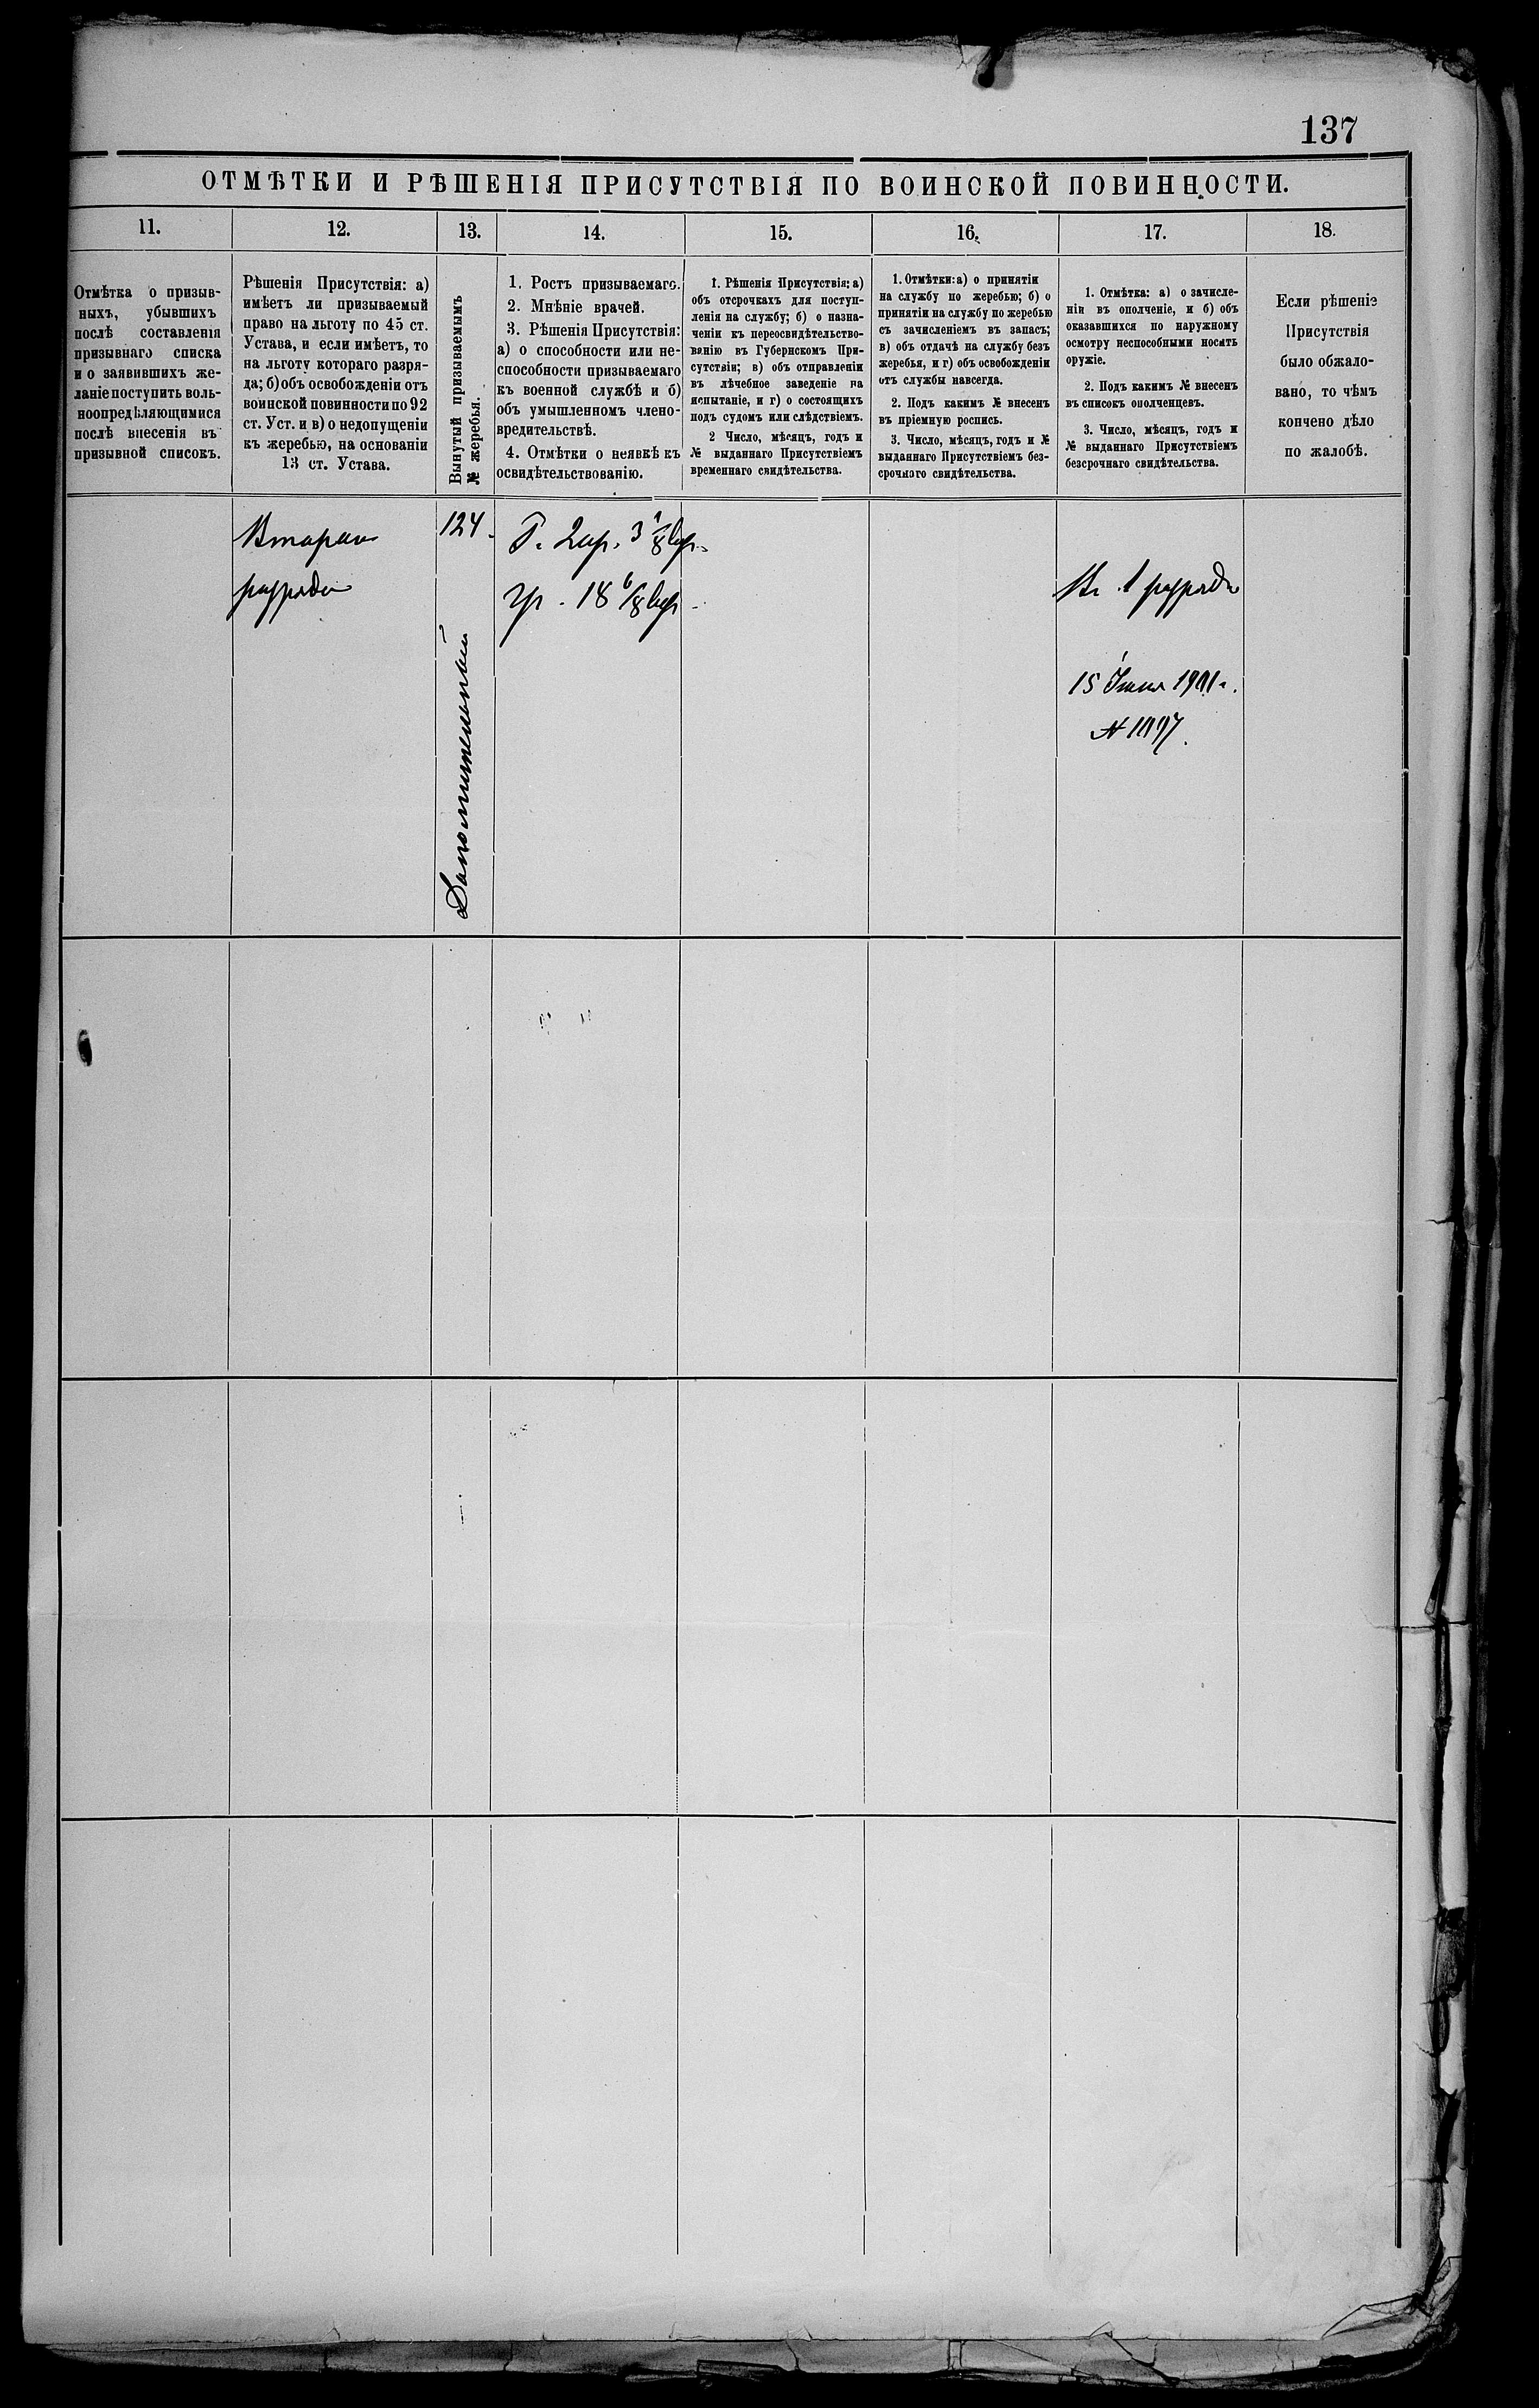 137
ОТМѢТКИ И РѢШЕНІЯ ПРИСУТСТВІЯ ПО ВОИНСКОЙ ПОВИННОСТИ.
11.
12.
13.
14.
15.
16.
17.
18.
Отмѣтка о призыв-
ныхъ, убывшихъ
послѣ составленія
призывнаго списка
и о заявившихъ же-
ланіе поступить воль-
ноопредѣляющимися
послѣ внесенія въ
призывной списокъ.
Рѣшенія Присутствія: а)
имѣетъ ли призываемый
право на льготу по 45 ст.
Устава, и если имѣетъ, то
на льготу котораго разря-
да; б) объ освобожденіи отъ
воинской повинности по 92
ст. Уст. и в) о недопущеніи
къ жеребью, на основаніи
13 ст. Устава.
Вынутый призываемымъ
№ жеребья.
1. Ростъ призываемаго.
2. Мнѣніе врачей.
3. Рѣшенія Присутствія:
а) о способности или не-
способности призываемаго
къ военной службѣ и б)
объ умышленномъ члено-
вредительствѣ.
4. Отмѣтки о неявкѣ къ
освидѣтельствованію.
1. Рѣшенія Присутствія: а)
объ отсрочкахъ для поступ-
ленія на службу; б) о назна-
ченіи къ переосвидѣтельство-
ванію въ Губернскомъ При-
сутствіи; в) объ отправленіи
въ лѣчебное заведеніе на
испытаніе, и г) о состоящихъ
подъ судомъ или слѣдствіемъ.
2 Число, мѣсяцъ, годъ и
№ выданнаго Присутствіемъ
временнаго свидѣтельства.
1. Отмѣтки: а) о принятіи
на службу по жеребью; б) о
принятіи на службу по жеребью
съ зачисленіемъ въ запасъ;
в) объ отдачѣ на службу безъ
жеребья, и г) объ освобожденіи
отъ службы навсегда.
2. Подъ какимъ № внесенъ
въ пріемную роспись.
3. Число, мѣсяцъ, годъ и №
выданнаго Присутствіемъ без-
срочнаго свидѣтельства.
1. Отмѣтка: а) о зачисле-
ніи въ ополченіе, и б) объ
оказавшихся по наружному
осмотру неспособными носить
оружіе.
2. Подъ какимъ № внесенъ
въ списокъ ополченцевъ.
3. Число, мѣсяцъ, годъ и
№ выданнаго Присутствіемъ
безсрочнаго свидѣтельства.
Если рѣшеніе
Присутствія
было обжало-
вано, то чѣмъ
кончено дѣло
по жалобѣ.
Втораго
разряда
124.
Дополнительный
Р. 2 ар. 3 1/8 вер.
гр. 18 6/8 вер.
1 разряда
15 1901 г.